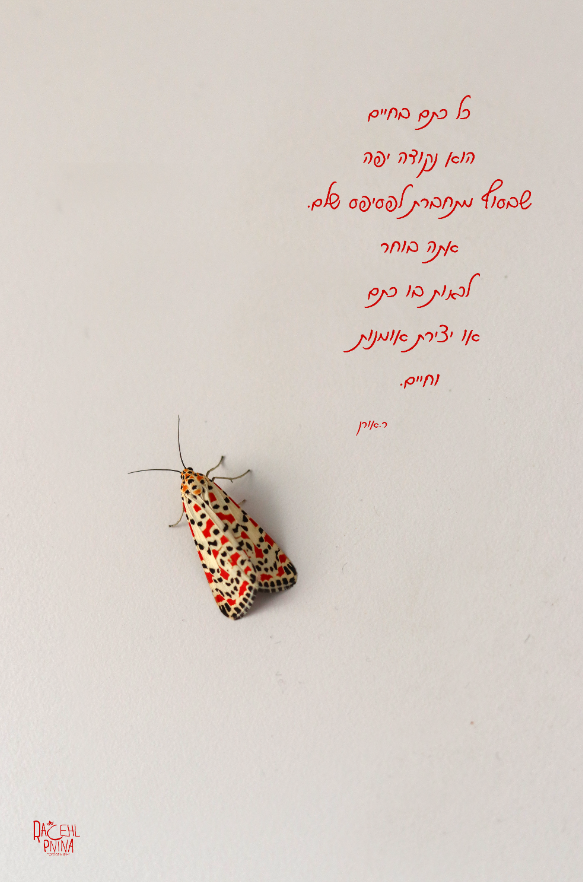 כל כתם בחיים
הוא נקודה יפה
שבסוף מתחברת לפסיפס שלם.
אתה בוחר
לראות בו כתם
או יצירת אומנות
וחיים.
ר.אורן
RACEHL
PNINA